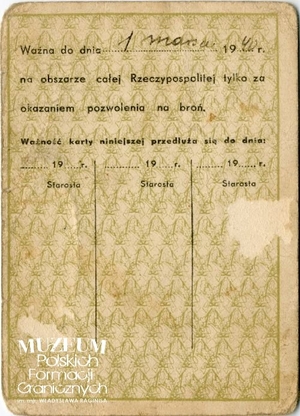 Ważna do dnia 1 marca 1940 r.
na obszarze całej Rzeczypospolitej tylko za
okazaniem pozwolenia na broń.
Ważność karty niniejszej przedłuża się do dnia:
......... 19.....r. ......... 19.....r. ......... 19.....r.
Starosta Starosta Starosta
MUZEUM
Polskich
Formacji
Granicznych
im. mjr. WŁADYSŁAWA RAGINISA